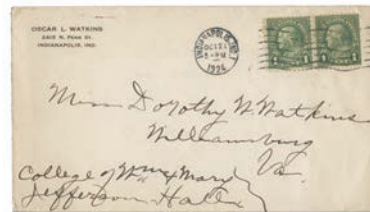 OSCAR L. WATKINS
2415 N. PENN ST.
INDIANAPOLIS, IND.
INDIANAPOLIS, IND.
OCT 21
5-PM
1924
1
1
Miss Dorothy W Watkins
Williamsburg
Va.
College of Wm & Mary
Jefferson Hall